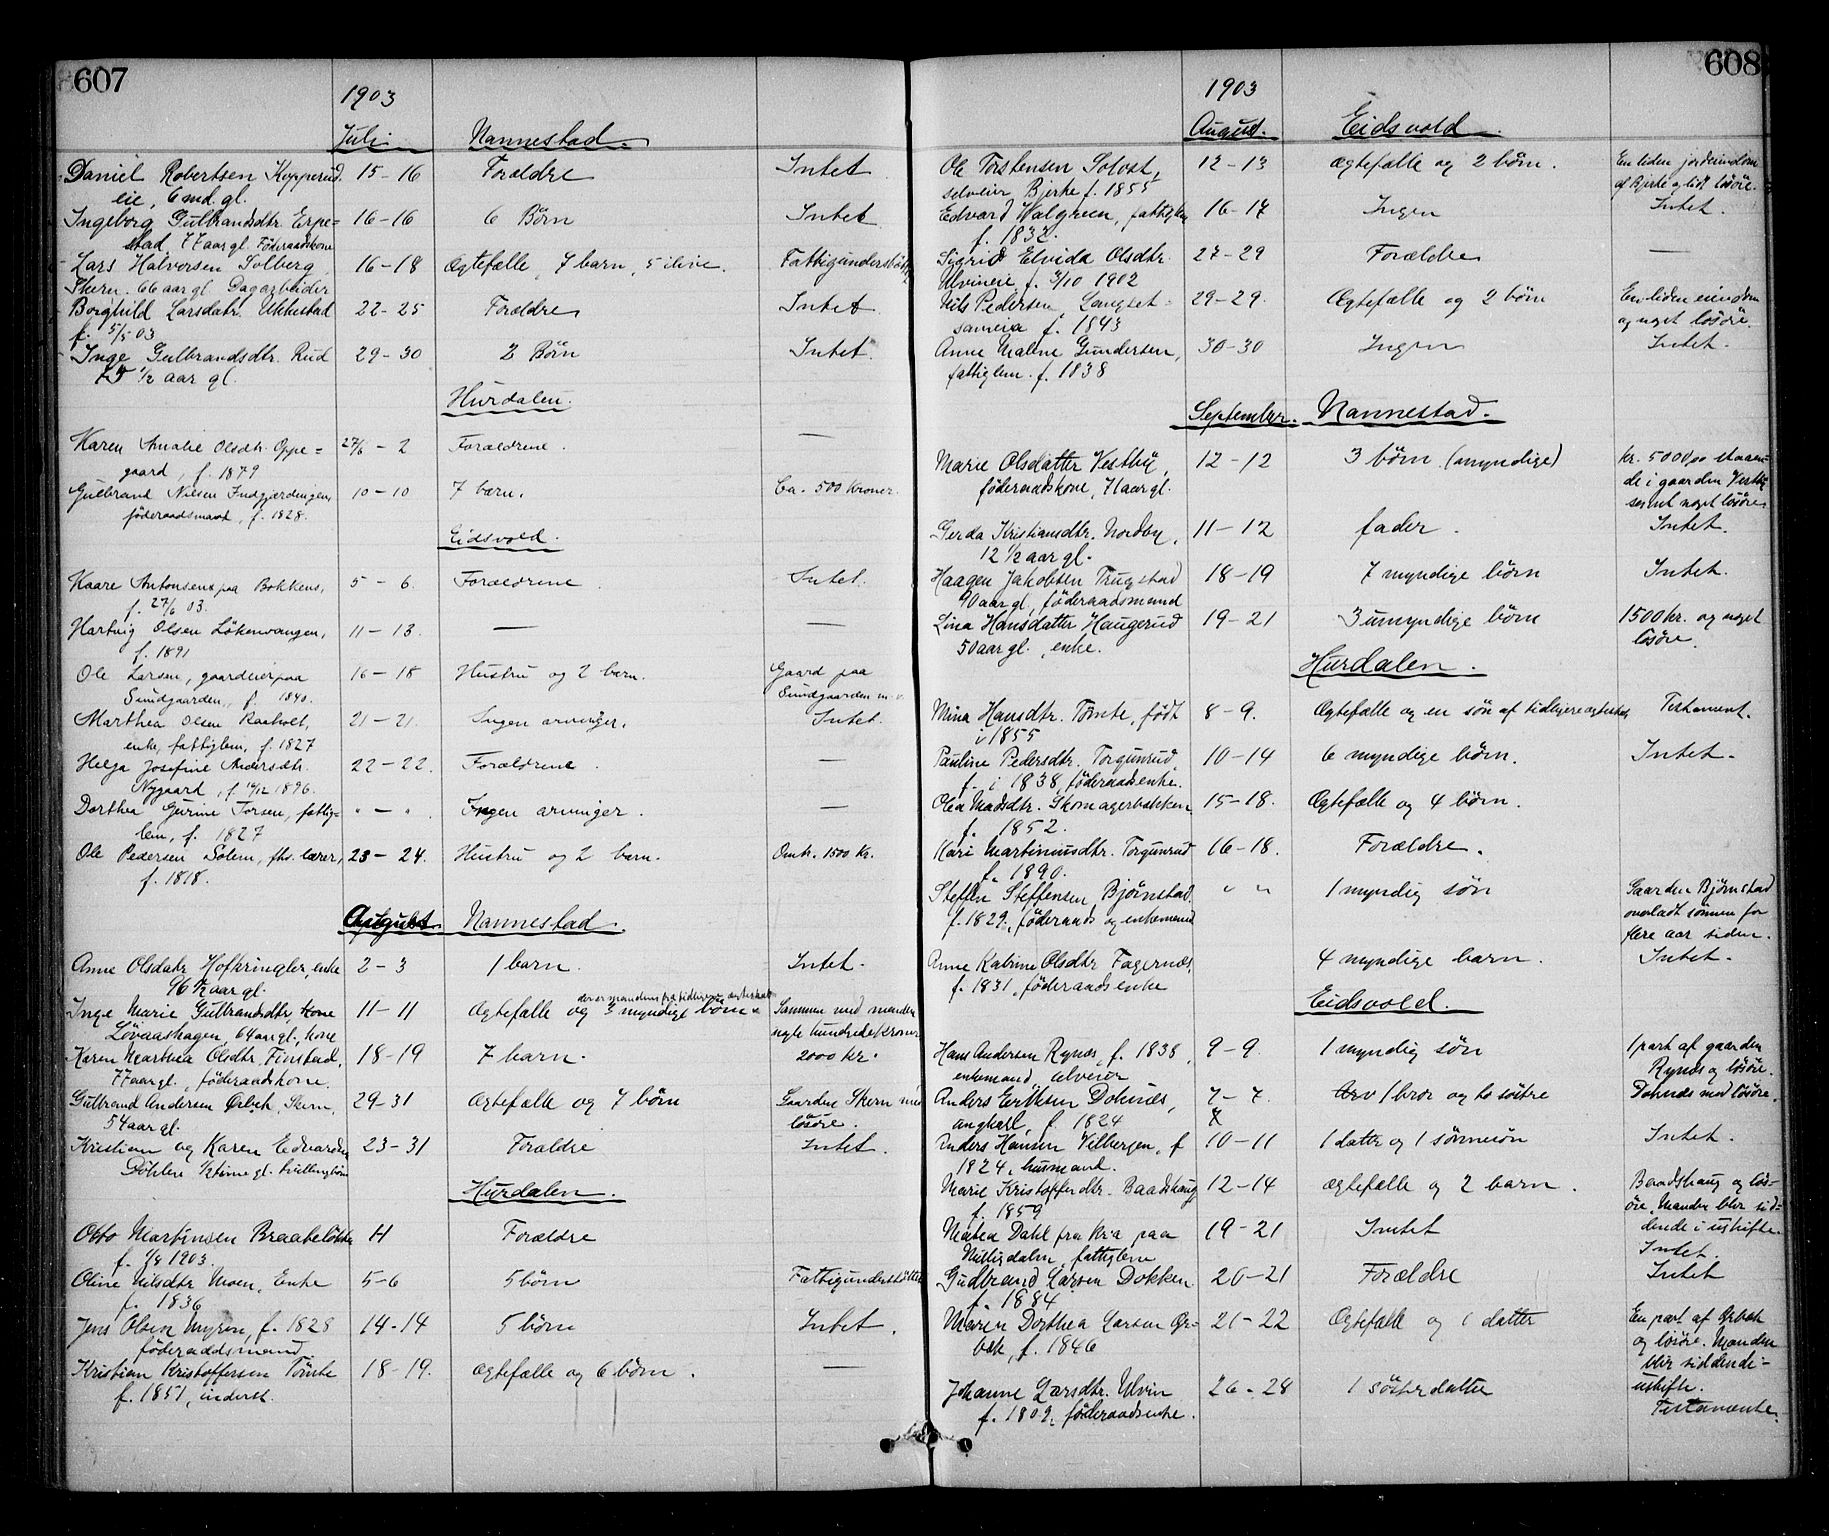 607
1903
Juli Nannestad
Daniel Robertsen Kopperud 15-16 Forældre Intet
eie, 6 md. gl.
Ingeborg Gulbrandsdtr. Erpe= 16-16 6 Børn Intet
stad, 77 aar gl. Föderaadskone
Lars Halvorsen Solberg 16-18 Ægtefælle, 7 barn, 5 ilive. Fattigunderstött
Skern. 66 aar gl. Dagarbeider
Borghild Larsdatr. Ukkestad 22-25 Forældre Intet
f. 5/5 03
Inge Gulbrandsdtr. Rud 29-30 2 Börn Intet.
75 1/2 aar gl.
Hurdalen.
Karen Amalie Olsdtr. Oppe= 27/6 - 2 Forældrene. —
gaard, f. 1879
Gulbrand Nielsen Indgjærdingen, 10-10 7 børn. Ca. 500 Kroner.
föderaadsmand, f. 1828.
Eidsvold.
Kaare Antonsen paa Bokkens, 5-6. Forældrene Intet.
f. 27/6 03.
Hartvig Olsen Lökenvangen, 11-13. — —
f. 1891
Ole Larsen, gaardeier paa 16-18 Hustru og 2 barn. Gaard paa
Sundgaarden, f. 1840. Sundgaarden m.v.
Marthea Olsen Raaholt, 21-21. Ingen arvinger. Intet.
enke, fattiglem, f. 1827
Helga Josefine Andersdtr. 22-22. Forældrene. —
Nygaard, f. 1896.
Dorthea Gurine Torsen, fattig- " - ". Ingen arvinger. —
lem, f. 1827
Ole Pedersen Solem, fhv. lærer, 23-24. Hustru og 2 barn. Omtr. 1500 Kr.
f. 1818.
August Nannestad.
Anne Olsdatr Hofkringler, enke 2-3 1 barn. Intet.
96 1/2 aar gl.
Inge Marie Gulbrandsdtr. kone 11-11 Ægtefælle og 3 myndige börn Sammen med manden
Lövaashagen, 64 aar gl., kone nogle hundrede kroner
Karen Marthea Olsdtr. Finstad, 18-19 7 barn. 2000 Kr.
77 aar gl., föderaadskone.
Gulbrand Andersen Ørbek, Skern, 29-31 Ægtefælle og 7 börn Gaarden Skern med
54 aar gl. lösöre.
Kristian og Karen Edvardsen 23-31 Forældre Intet.
Döhlen 1/2 time gl. tvillingbörn
Hurdalen.
Otto Martinsen Braatelökken H Forældre
f. 1903.
Oline Nilsdtr. Moen, Enke 5-6 5 börn Fattigunderstöttet
f. 1836
Jens Olsen Myren, f. 1828 14-14 5 börn Intet.
föderaadsmand
Kristian Kristoffersen Tömte 18-19. Ægtefælle og 6 börn. —
f. 1851, inderst.
608
1903
August. Eidsvold.
Ole Torstensen 12-13 Ægtefælle og 2 börn. En liden jordeiendom
selveier, Bjerke f. 1855 af Bjerke og lidt lösöre.
Edvard Walgreen, fattiglem 16-17 Ingen Intet.
f. 1832.
Sigrid Elvida Olsdtr. 27-29 Forældre —
Ulvineie f. 3/10 1902
Nils Pedersen, Langset- 29-29. Ægtefælle og 2 börn En liden eiendom
sameia f. 1843 og noget lösöre.
Anne Malene Gundersen, 30-30 Ingen Intet.
fattiglem. f. 1838
September. Nannestad.
Marie Olsdatter Vestby, 12-12 3 börn (myndige) kr. 5000,00 staaen=
föderaadskone, 71 aar gl. de i gaarden Vestby
samt noget lösöre
Gerda Kristiansdtr. Nordby, 11-12 fader. Intet.
12 1/2 aar gl.
Haagen Jakobsen Trugstad 18-19 7 myndige börn Intet.
90 aar gl, föderaadsmand
Lina Hansdatter Haugerud 19-21 3 umyndige börn 1500 kr. og noget
50 aar gl., enke. lösöre.
Hurdalen.
Mina Hansdtr. Tömte, født 8-9. Ægtefælle og en sön af tidligere ægteskab Testament.
i 1855
Pauline Pedersdtr. Torgunrud, 10-14 6 myndige börn. Intet.
f. i 1838, föderaadsenke.
Olea Madsdtr. Skomagerbakken 15-18. Ægtefælle og 4 börn.
f. 1852.
Kari Martiniusdtr. Torgunrud 16-18. Forældre.
f. 1890.
Steffen Steffensen Bjørnstad. " " 1 myndig sön Gaarden Bjørnstad
f. 1829, föderaads og enkemand overladt sönnen for
flere aar siden.
Anne Katrine Olsdtr Fagernæs, 4 myndige barn. Intet.
f. 1831, föderaadsenke
Eidsvold.
Hans Andersen Rynæs, f. 1838, 9-9. 1 myndig sön 1 part af gaarden
enkemand, selveier Rynæs og lösöre.
Anders Eriksen Dohnæs, 7-7. Arv 1 bror og to söstre Dohnæs med lösöre.
ungkarl, f. 1824 X
Anders Hansen Vilbergen, f 10-11 1 datter og 1 sönnesön Intet.
1824, husmand.
Marie Kristoffersdtr. Baadshaug 12-14 Ægtefælle og 2 barn. Baadshaug og lös-
f. 1859 öre. Manden blir sid=
dende i uskifte.
Matea Dahl fra Kra paa 19-21 Intet Intet.
Nittedalen, fattiglem
Gudbrand Larsen Dokken 20-21 Forældre Intet
f. 1884
Maren Dorthea Larsen Ør- 21-22 Ægtefælle og 1 datter En part af Ørbæk
bæk, f. 1846 og lösöre. Manden
blir siddende i-
uskifte.
Johanne Larsdtr. Ulvin 26-28 1 sösterdatter Testamente.
f. 1809, föderaadsenke.